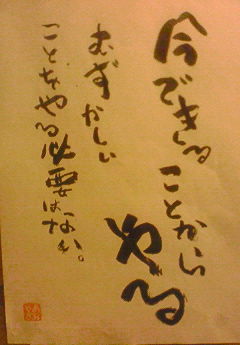 今できることから
やる
むずかしい
ことをやる必要はない。